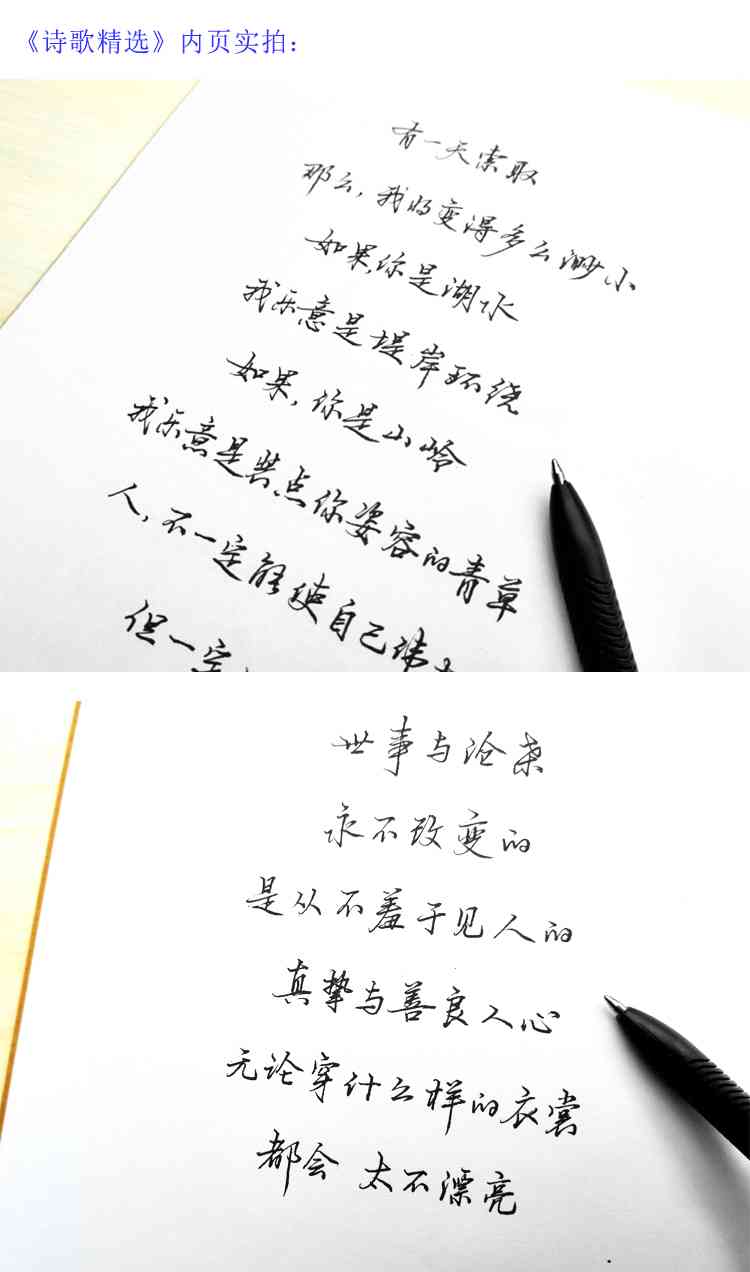 《诗歌精选》内页实拍：
有一天索取
那么，我将变得多么渺小
如果，你是湖水
我乐意是堤岸环绕
如果，你是山岭
我乐意是装点你姿容的青草
人，不一定能使自己伟大
但一定
世事与沧桑
永不改变的
是从不羞于见人的
真挚与善良人心
无论穿什么样的衣裳
都会 太不漂亮